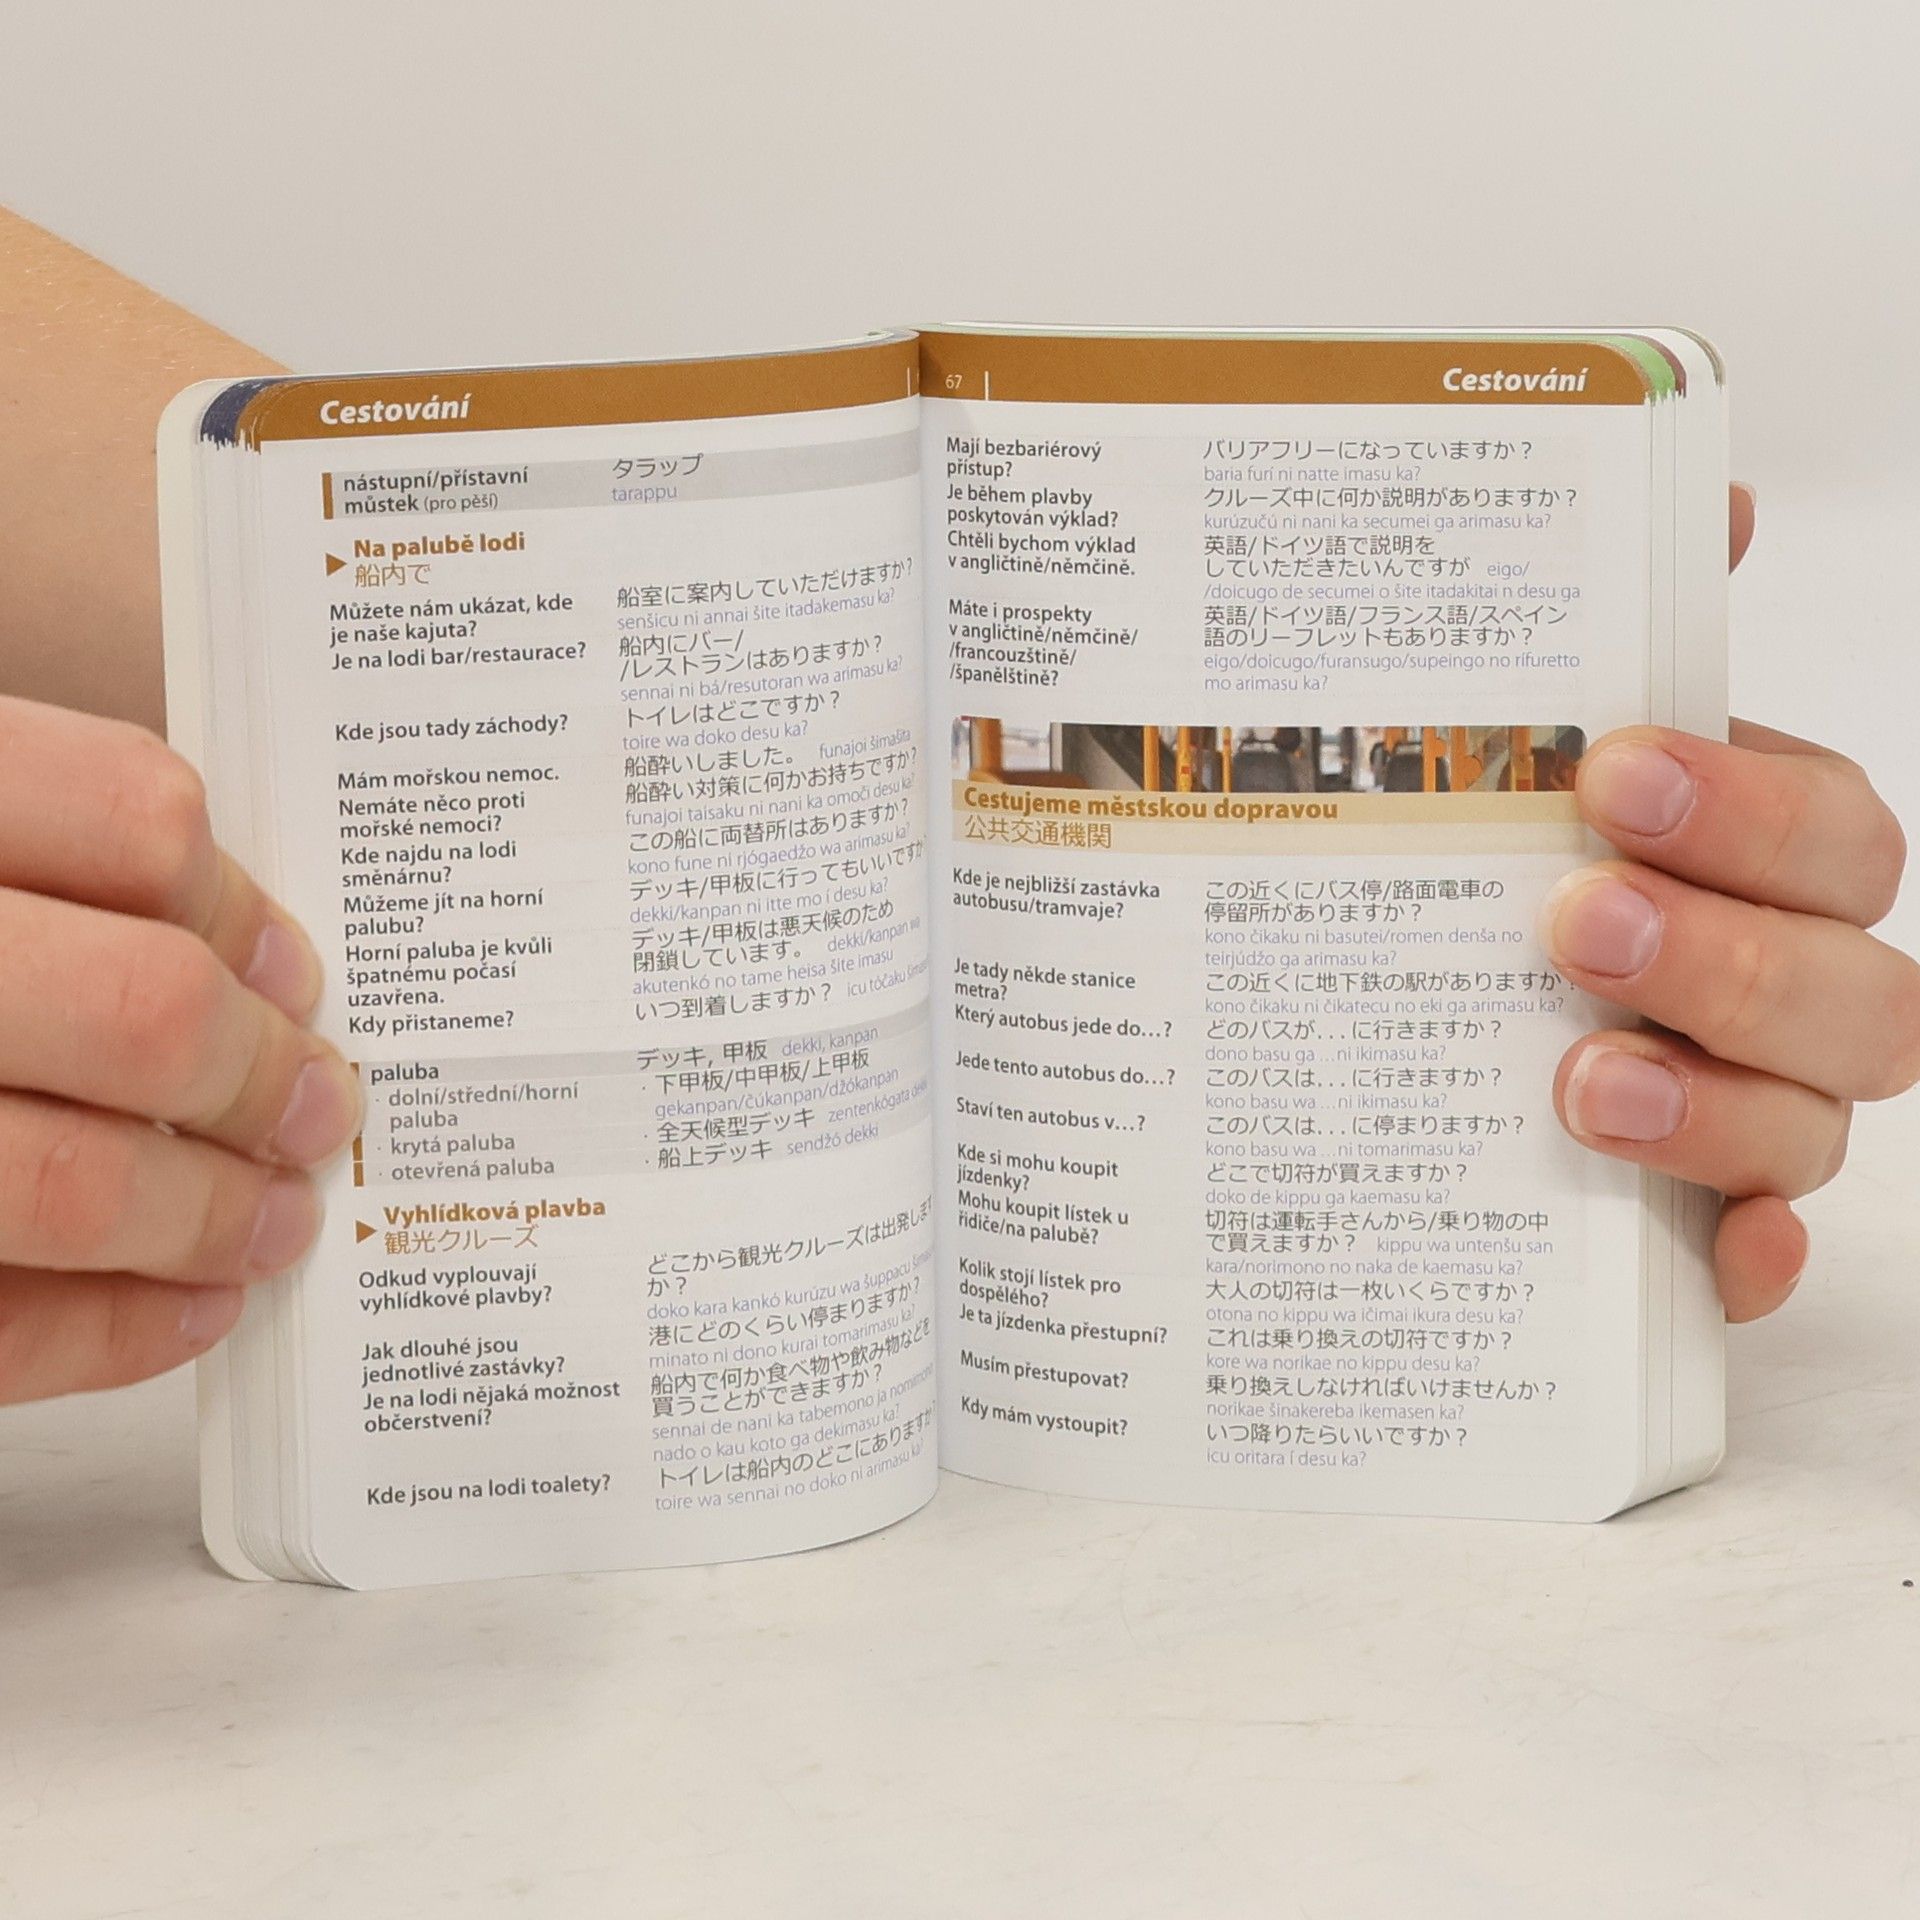 Cestování
nástupní/přístavní
můstek (pro pěší)
タラップ
tarappu
Na palubě lodi
船内で
Můžete nám ukázat, kde
je naše kajuta?
船室に案内していただけますか?
senšicu ni annai šite itadakemasu ka?
Je na lodi bar/restaurace?
船内にバー/
/レストランはありますか?
sennai ni bá/resutoran wa arimasu ka?
Kde jsou tady záchody?
トイレはどこですか?
toire wa doko desu ka?
Mám mořskou nemoc.
船酔いしました。 funajoi šimašita
Nemáte něco proti
mořské nemoci?
船酔い対策に何かお持ちですか?
funajoi taisaku ni nani ka omoči desu ka?
Kde najdu na lodi
směnárnu?
この船に両替所はありますか?
kono fune ni rjógaedžo wa arimasu ka?
Můžeme jít na horní
palubu?
デッキ/甲板に行ってもいいですか
dekki/kanpan ni itte mo í desu ka?
Horní paluba je kvůli
špatnému počasí
uzavřena.
デッキ/甲板は悪天候のため
閉鎖しています。 dekki/kanpan wa
akutenkó no tame heisa šite imasu
Kdy přistaneme?
いつ到着しますか? icu tóčaku
paluba
デッキ, 甲板 dekki, kanpan
· dolní/střední/horní
paluba
· 下甲板/中甲板/上甲板
gekanpan/čúkanpan/džókanpan
· krytá paluba
· 全天候型デッキ zentenkógata dekki
· otevřená paluba
· 船上デッキ sendžó dekki
Vyhlídková plavba
観光クルーズ
Odkud vyplouvají
vyhlídkové plavby?
どこから観光クルーズは出発します
か?
doko kara kankó kurúzu wa šuppacu
Jak dlouhé jsou
jednotlivé zastávky?
港にどのくらい停まりますか?
minato ni dono kurai tomarimasu ka?
Je na lodi nějaká možnost
občerstvení?
船内で何か食べ物や飲み物などを
買うことができますか?
sennai de nani ka tabemono ja nomimono
nado o kau koto ga dekimasu ka?
Kde jsou na lodi toalety?
トイレは船内のどこにありますか?
toire wa sennai no doko ni arimasu ka?
67
Cestování
Mají bezbariérový
přístup?
バリアフリーになっていますか?
baria furí ni natte imasu ka?
Je během plavby
poskytován výklad?
クルーズ中に何か説明がありますか?
kurúzučú ni nani ka secumei ga arimasu ka?
Chtěli bychom výklad
v angličtině/němčině.
英語/ドイツ語で説明を
していただきたいんですが eigo/
/doicugo de secumei o šite itadakitai n desu ga
Máte i prospekty
v angličtině/němčině/
/francouzštině/
/španělštině?
英語/ドイツ語/フランス語/スペイン
語のリーフレットもありますか?
eigo/doicugo/furansugo/supeingo no rífuretto
mo arimasu ka?
Cestujeme městskou dopravou
公共交通機関
Kde je nejbližší zastávka
autobusu/tramvaje?
この近くにバス停/路面電車の
停留所がありますか?
kono čikaku ni basutei/romen denša no
teirjúdžo ga arimasu ka?
Je tady někde stanice
metra?
この近くに地下鉄の駅がありますか?
kono čikaku ni čikatecu no eki ga arimasu ka?
Který autobus jede do…?
どのバスが...に行きますか?
dono basu ga …ni ikimasu ka?
Jede tento autobus do…?
このバスは...に行きますか?
kono basu wa …ni ikimasu ka?
Staví ten autobus v…?
このバスは...に停まりますか?
kono basu wa …ni tomarimasu ka?
Kde si mohu koupit
jízdenky?
どこで切符が買えますか?
doko de kippu ga kaemasu ka?
Mohu koupit lístek u
řidiče/na palubě?
切符は運転手さんから/乗り物の中
で買えますか? kippu wa untenšu san
kara/norimono no naka de kaemasu ka?
Kolik stojí lístek pro
dospělého?
大人の切符は一枚いくらですか?
otona no kippu wa ičimai ikura desu ka?
Je ta jízdenka přestupní?
これは乗り換えの切符ですか?
kore wa norikae no kippu desu ka?
Musím přestupovat?
乗り換えしなければいけませんか?
norikae šinakereba ikemasen ka?
Kdy mám vystoupit?
いつ降りたらいいですか?
icu oritara í desu ka?